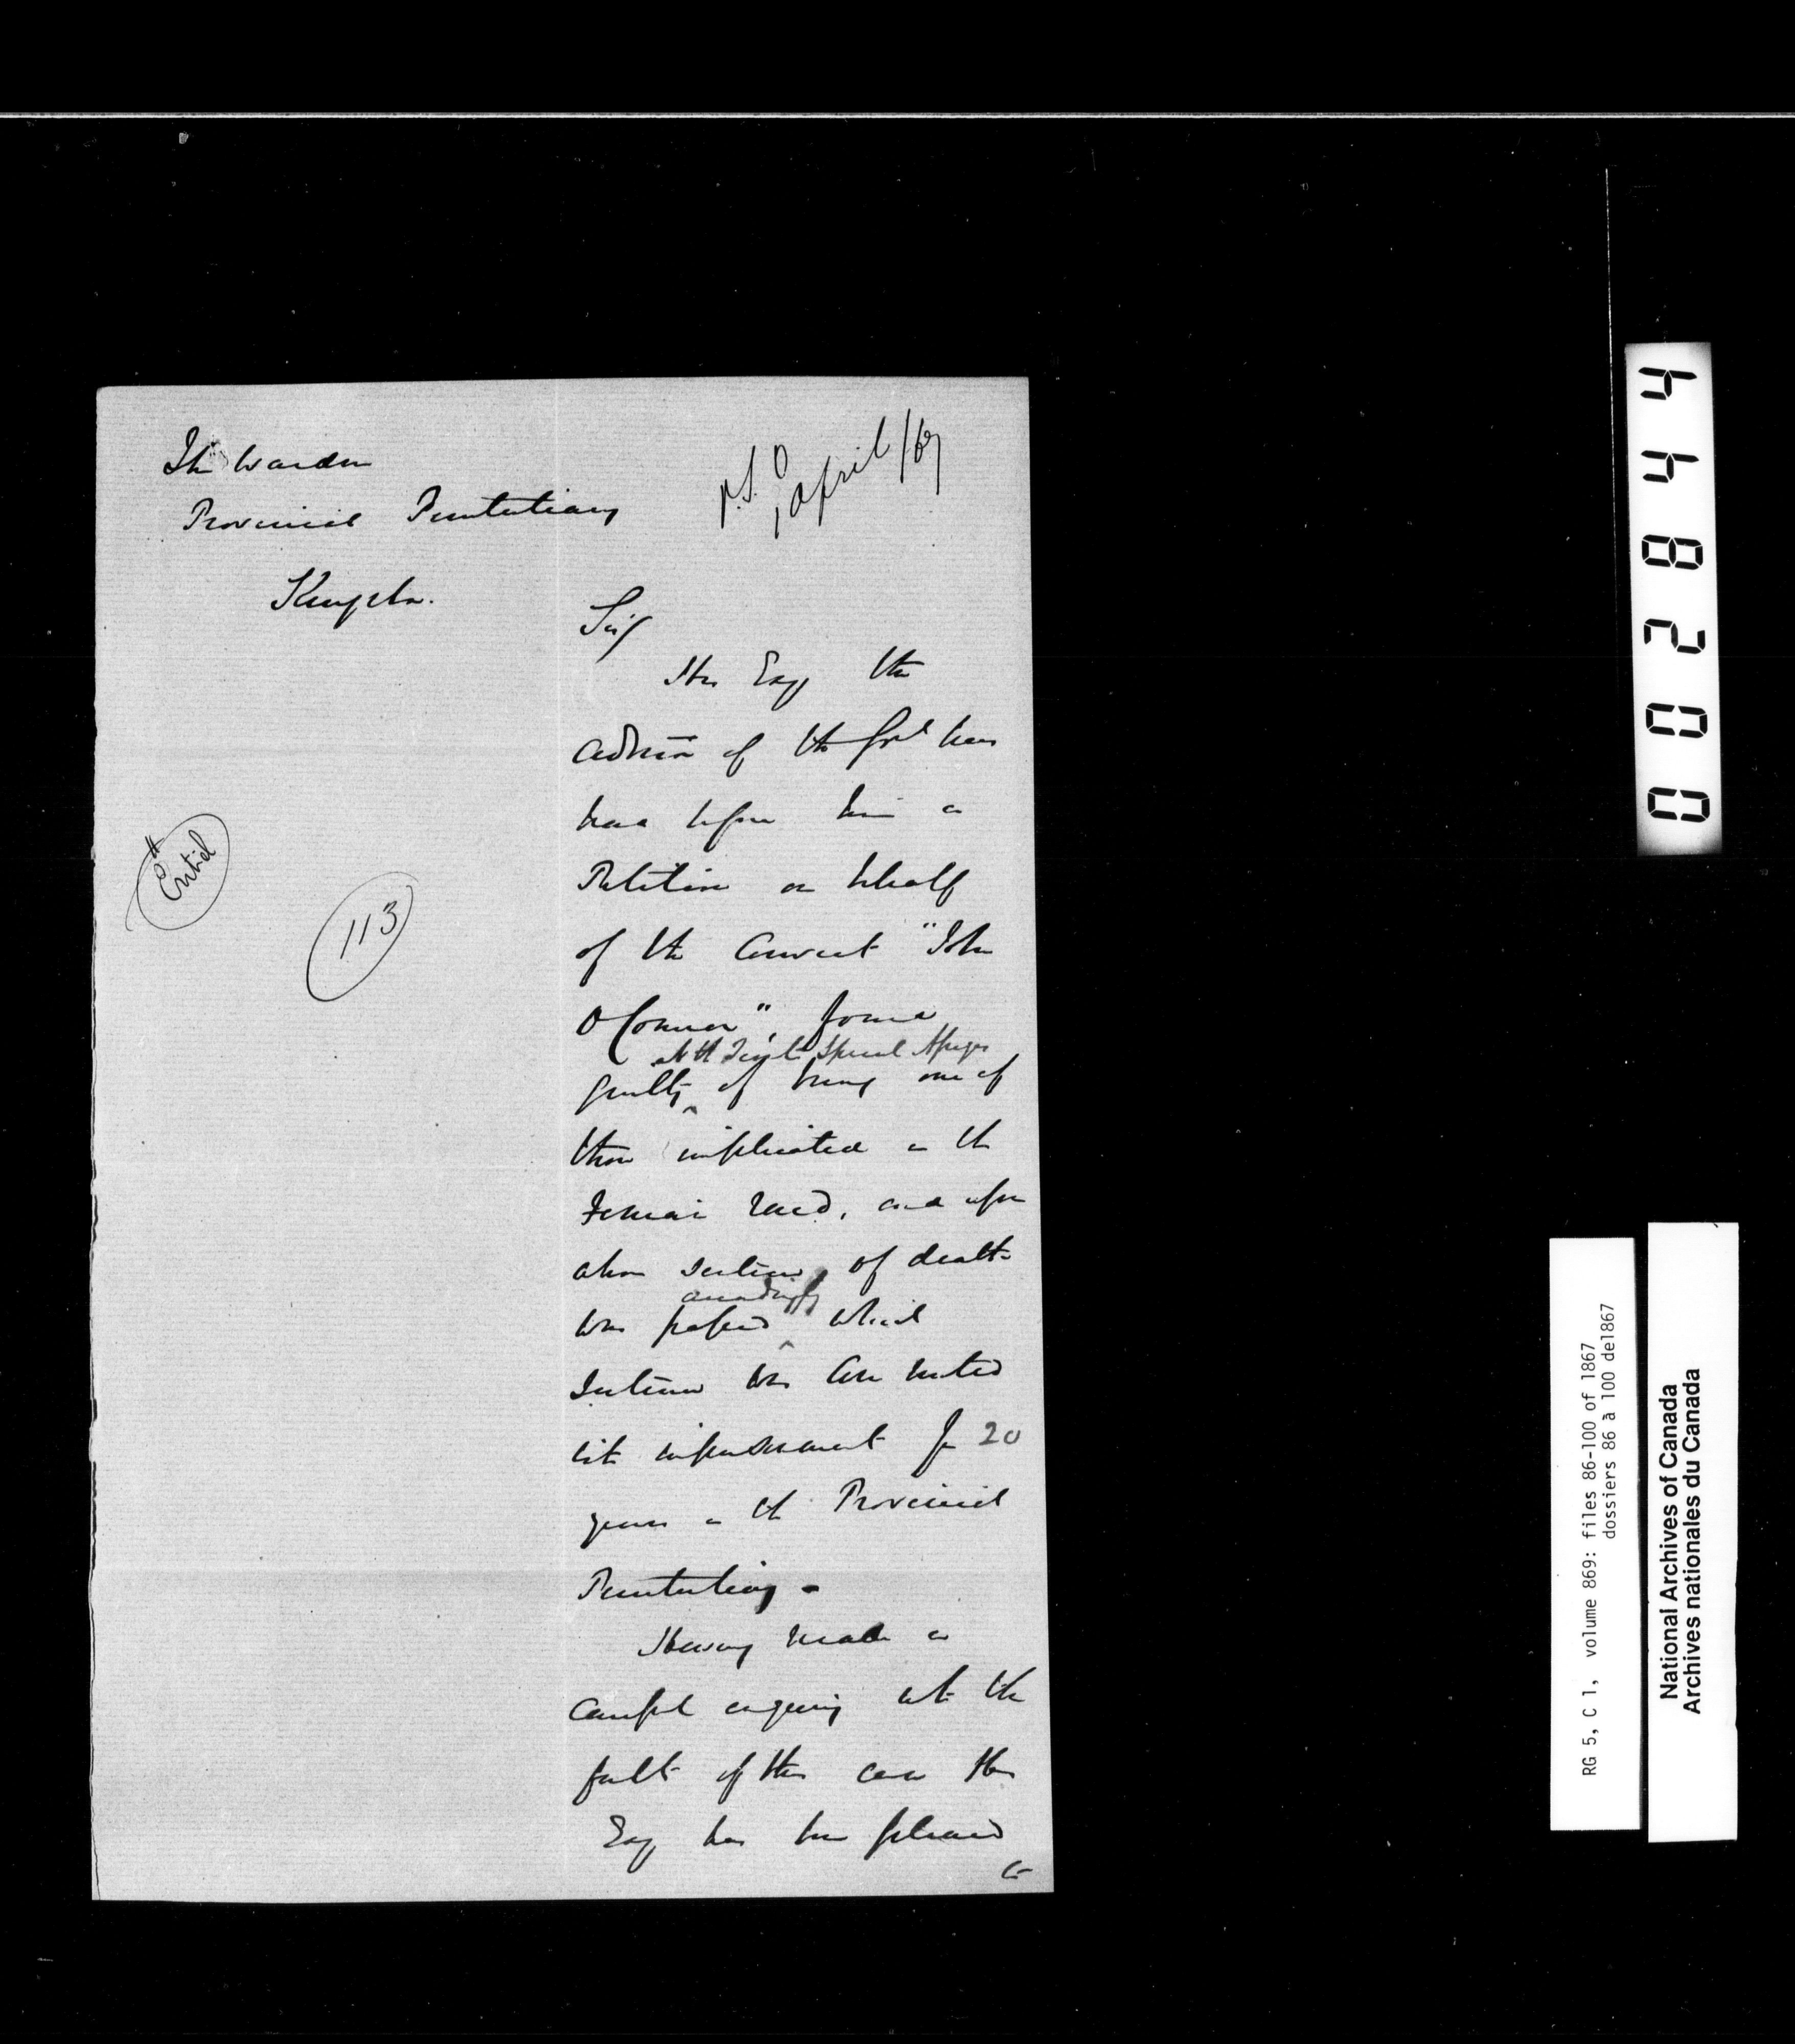 The Warden
Provincial Penitentiary
Kingston.
P.S.O
1 April /67
Sir
His Excy the
Admin of the Govt has
had before him a
Petition on behalf
of the Convict "John
O'Connor", found
at the Special Assizes
guilty of being one of
those implicated in the
Fenian Raid, and upon
whom sentence of death
accordingly
was passed which
sentence was commuted
into imprisonment for 20
years in the Provincial
Penitentiary -
Having made a
careful enquiry into the
facts of the case His
Excy has been pleased
to
Ent'd
113
0028444
RG 5, C 1, volume 869: files 86-100 of 1867
dossiers 86 à 100 de1867
National Archives of Canada
Archives nationales du Canada